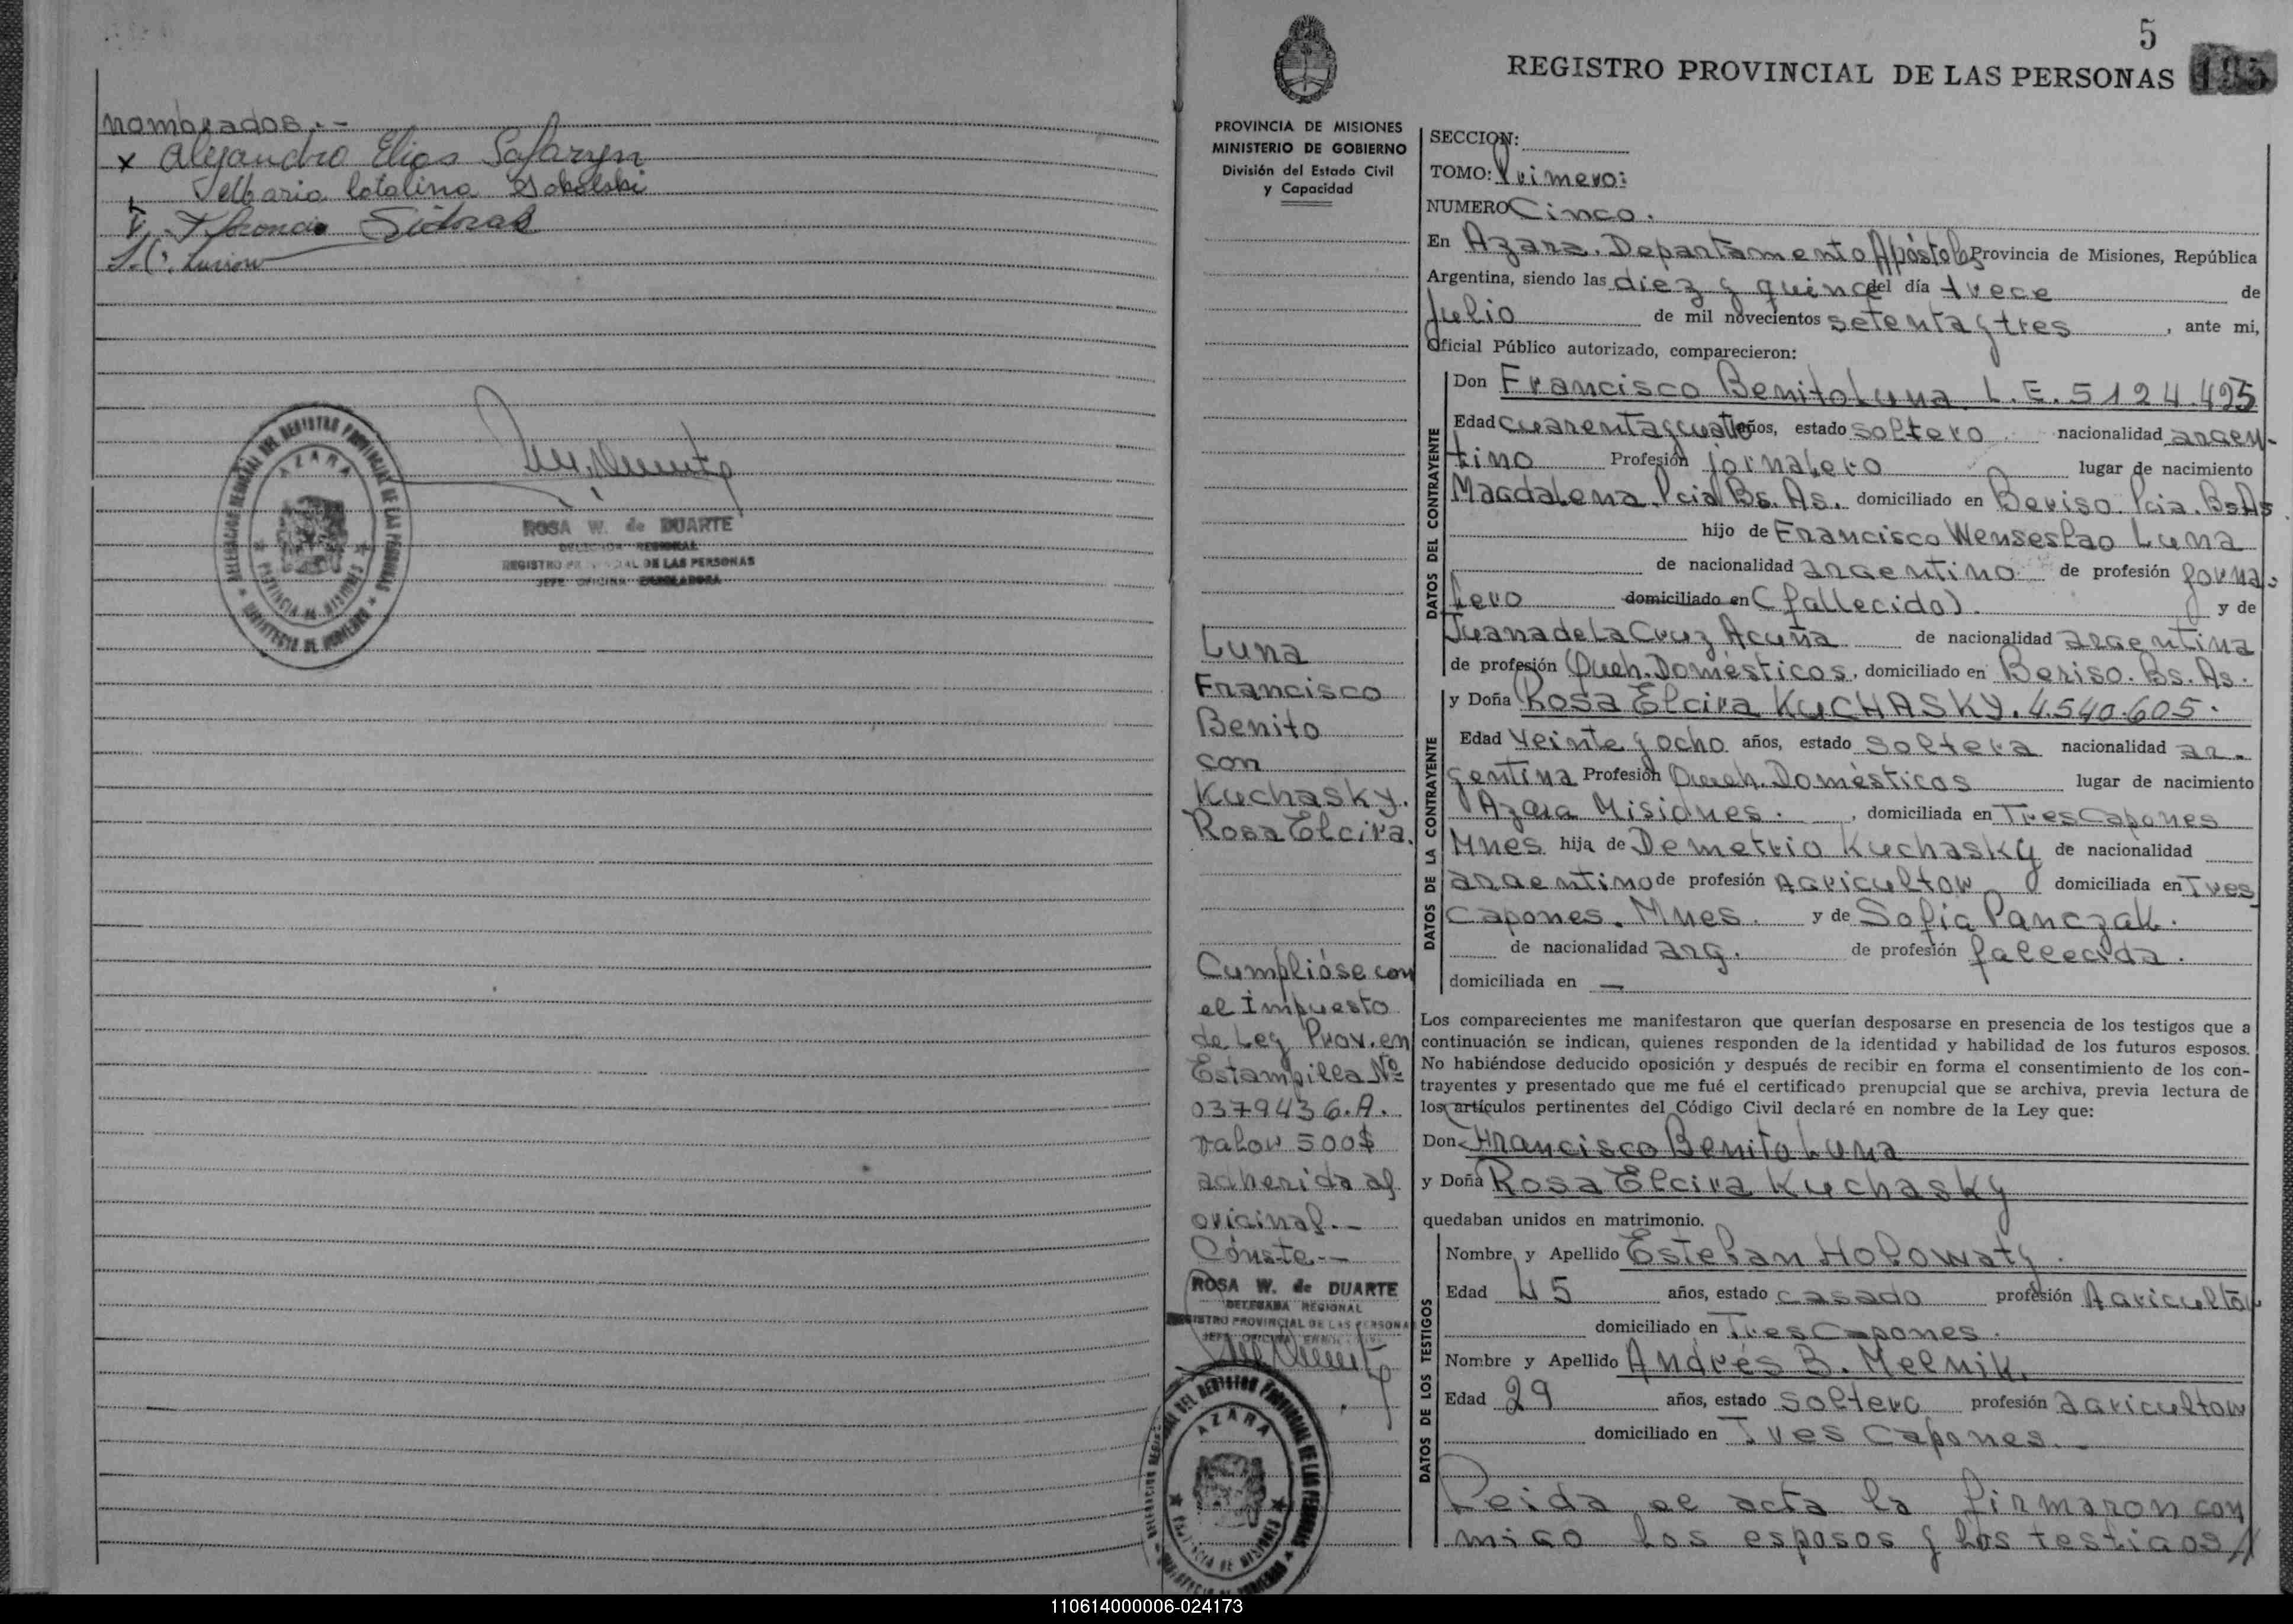 nombrados.--
x Alejandro Elias Safaryn
Maria Catalina Sobolski
DELEGACION REGIONAL DEL REGISTRO PROVINCIAL DE LAS PERSONAS
AZARA
PROVINCIA DE MISIONES
MINISTERIO DE GOBIERNO
ROSA W. de DUARTE
DELEGADA REGIONAL
REGISTRO PROVINCIAL DE LAS PERSONAS
JEFE OFICINA ENROLADORA
5
REGISTRO PROVINCIAL DE LAS PERSONAS 195
PROVINCIA DE MISIONES
MINISTERIO DE GOBIERNO
División del Estado Civil
y Capacidad
Luna
Francisco
Benito
con
Kuchasky.
Rosa Elcira.
Cumplióse con
el Impuesto
de Ley Prov. en
Estampilla Nº
0379436.A.
valor 500$
adherida al
original.-
Cónste.--
ROSA W. de DUARTE
DELEGADA REGIONAL
REGISTRO PROVINCIAL DE LAS PERSONAS
JEFE OFICINA
DELEGACION REGIONAL DEL REGISTRO PROVINCIAL DE LAS PERSONAS
AZARA
PROVINCIA DE MISIONES
MINISTERIO DE GOBIERNO
SECCION:
TOMO: Primero:
NUMERO Cinco.
En Azara. Departamento Apóstoles Provincia de Misiones, República
Argentina, siendo las diez y quince del día trece de
Julio de mil novecientos setenta y tres, ante mi,
Oficial Público autorizado, comparecieron:
DATOS DEL CONTRAYENTE
Don Francisco Benito Luna L.E. 5124.495
Edad cuarenta y cuatro años, estado soltero nacionalidad argen-
tino Profesión jornalero lugar de nacimiento
Magdalena. Pcia Bs. As. domiciliado en Beriso Pcia. Bs As
hijo de Francisco Wenseslao Luna
de nacionalidad argentino de profesión jorna-
lero domiciliado en (fallecido). y de
Juana de la Cruz Acuña de nacionalidad argentina
de profesión Queh. Domésticos, domiciliado en Beriso. Bs. As.
DATOS DE LA CONTRAYENTE
y Doña Rosa Elcira KuCHASKY. 4.540.605.
Edad Veinte y ocho años, estado soltera nacionalidad ar-
gentina Profesión Queh. Domésticos lugar de nacimiento
Azara Misiones. , domiciliada en Tres Capones
Mnes hija de Demetrio Kuchasky de nacionalidad
argentino de profesión Agricultor domiciliada en Tres
Capones. Mnes. y de Sofia Panczak.
de nacionalidad arg. de profesión fallecida.
domiciliada en —
Los comparecientes me manifestaron que querían desposarse en presencia de los testigos que a
continuación se indican, quienes responden de la identidad y habilidad de los futuros esposos.
No habiéndose deducido oposición y después de recibir en forma el consentimiento de los con-
trayentes y presentado que me fué el certificado prenupcial que se archiva, previa lectura de
los artículos pertinentes del Código Civil declaré en nombre de la Ley que:
Don Francisco Benito Luna
y Doña Rosa Elcira Kuchasky
quedaban unidos en matrimonio.
DATOS DE LOS TESTIGOS
Nombre y Apellido Esteban Holowaty.
Edad 45 años, estado casado profesión Agricultor
domiciliado en Tres Capones.
Nombre y Apellido Andrés B. Melnik.
Edad 29 años, estado soltero profesión agricultor
domiciliado en Tres Capones.-
Leida el acta la firmaron con
migo los esposos y los testigos//
110614000006-024173